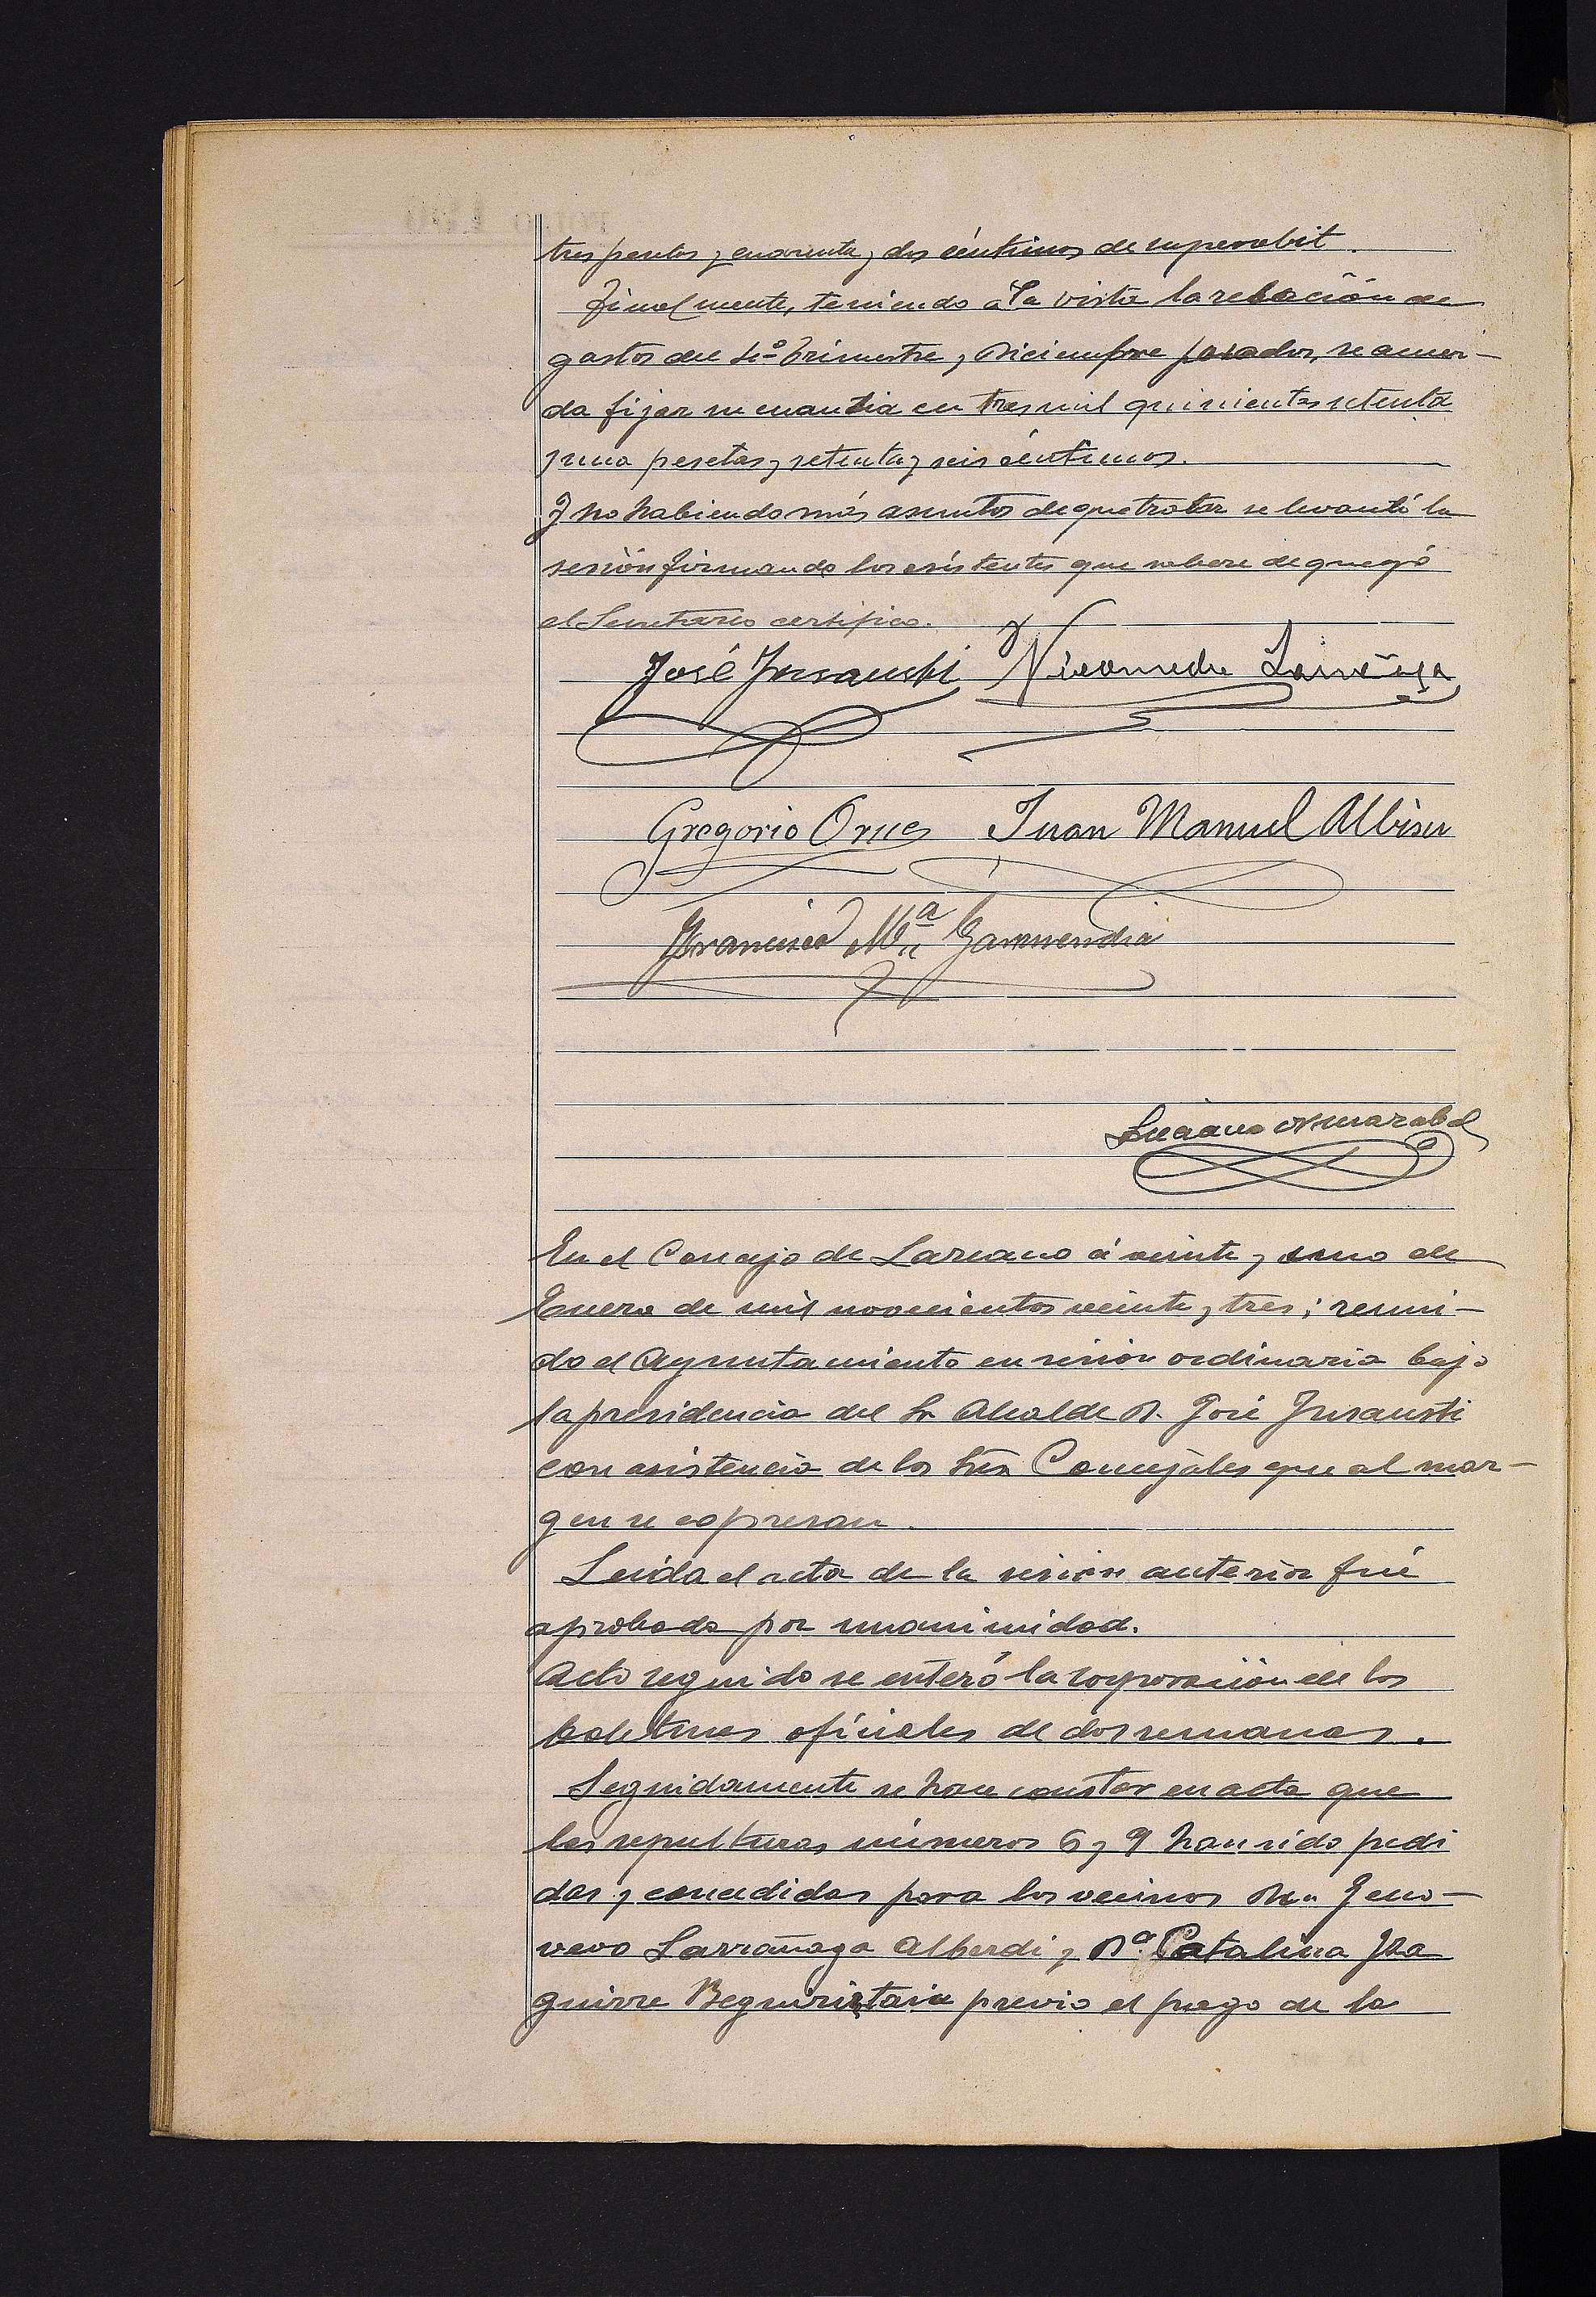 tres pesetas y cuarenta y dos céntimos de superabit.
Finalmente, teniendo á la vista la relación de
gastos del 4º trimestre, Diciembre pasados, se acuer-
da fijar su cuantia en tres mil quinientas setenta
y una pesetas y setenta y seis céntimos.
Y no habiendo más asuntos de que tratar se levantó la
sesión firmando los asistentes que saben de que yó
el Secretario certifico.
José Insausti Nicomedes Larrañaga
Gregorio Orue Juan Manuel Albisu
Francisco Mª Garmendia
Luciano
En el Concejo de Lazcano á veinte y uno de
Enero de mil novecientos veinte y tres; reuni-
do el Ayuntamiento en sesión ordinaria bajo
la presidencia del Sr Alcalde D. José Insausti
con asistencia de los Sres Concejales que al mar-
gen se expresan.
Leida el acta de la sesión anterior fué
aprobada por unanimidad.
Acto seguido se enteró la corporación de los
boletines oficiales de dos semanas.
Seguidamente se hace constar en acta que
las sepulturas números 6 y 9 han sido pedi
das y concedidas para los vecinos Geno-
veva Larrañaga Alberdi y Dª Catalina Iza
guirre Beguiristain previo el pago de la